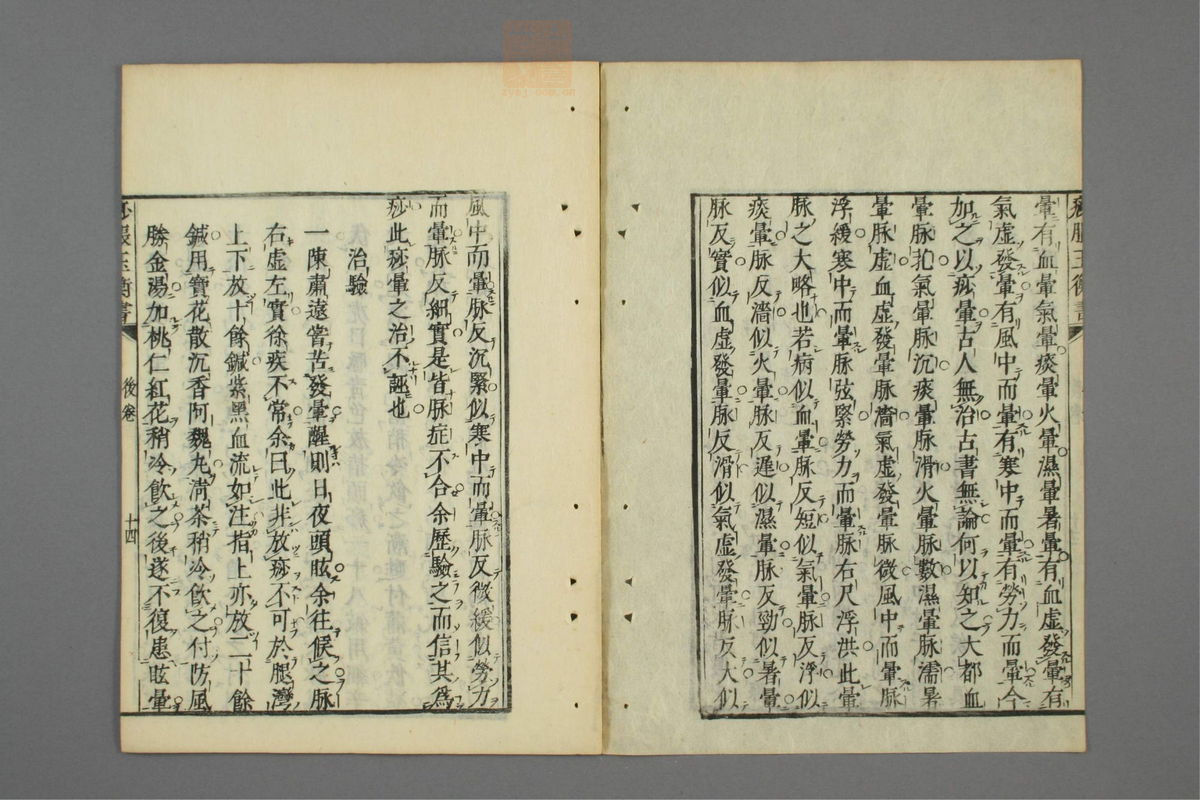 暈有血暈氣暈痰暈火暈濕暈暑暈有血虚發暈有
氣虚發暈有風中而暈有寒中而暈有勞力而暈今
加之以痧暈古人無治古書無論何以知之大都血
暈脉芤氣暈脉沉痰暈脉滑火暈脉數濕暈脉濡暑
暈脉虚血虚發暈脉濇氣虚發暈脉微風中而暈脉
浮緩寒中而暈脉弦緊勞力而暈脉右尺浮洪此暈
脉之大略也若病似血暈脉反短似氣暈脉反浮似
痰暈脉反濇似火暈脉反遲似濕暈脉反勁似暑暈
脉反實似血虚發暈脉反滑似氣虚發暈脉反大似
風中而暈脉反沉緊似寒中而暈脉反微緩似勞力
而暈脉反細實是皆脉症不合余歷驗之而信其爲
痧此痧暈之治不誣也
治驗
一陳肅遠嘗苦發暈醒則日夜頭眩余往候之脉
右虚左實徐疾不常余曰此非放痧不可於腿灣
上下放十餘鍼紫黑血流如注指上亦放二十餘
鍼用寶花散沉香阿魏丸淸茶稍冷飲之付防風
勝金湯加桃仁紅花稍冷飲之後遂不復患眩暈
後卷
十四
zysj.com.cn